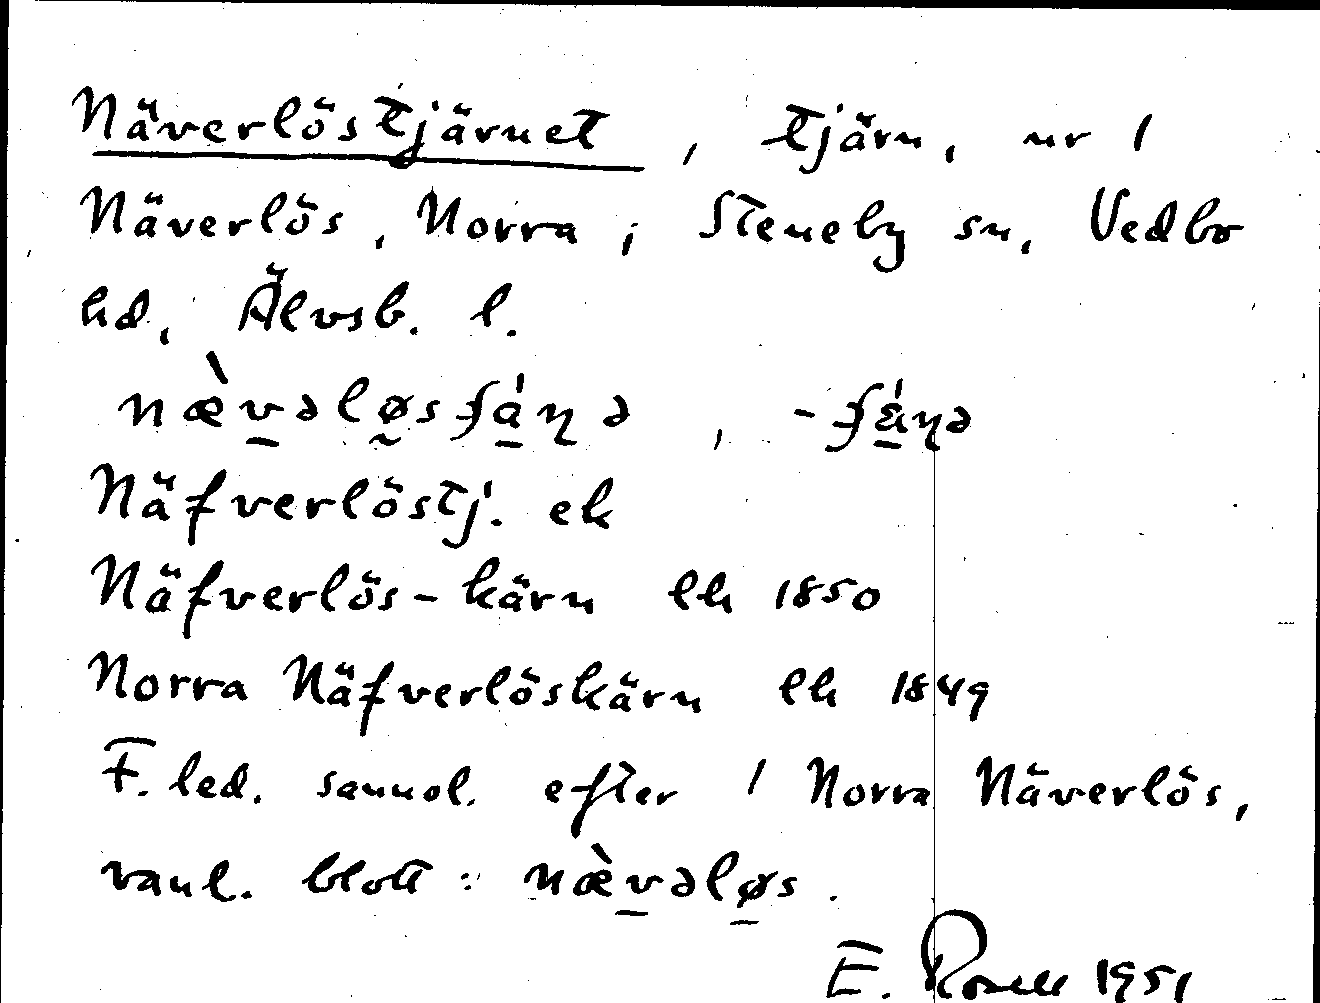 Näverlöstjärnet, tjärn, ur 1
Näverlös, Norra; Steneby sn, Vedbo
hd, Älvsb. l.
næ̀vəløsʃánə, -ʃǽnə
Näfverlöstj. ek
Näfverlös-kärn lh 1850
Norra Näfverlöskärn lh 1849
F. led. sannol. efter 1 Norra Näverlös,
vanl. blott: næ̀vəløs.
E. Rosell 1951